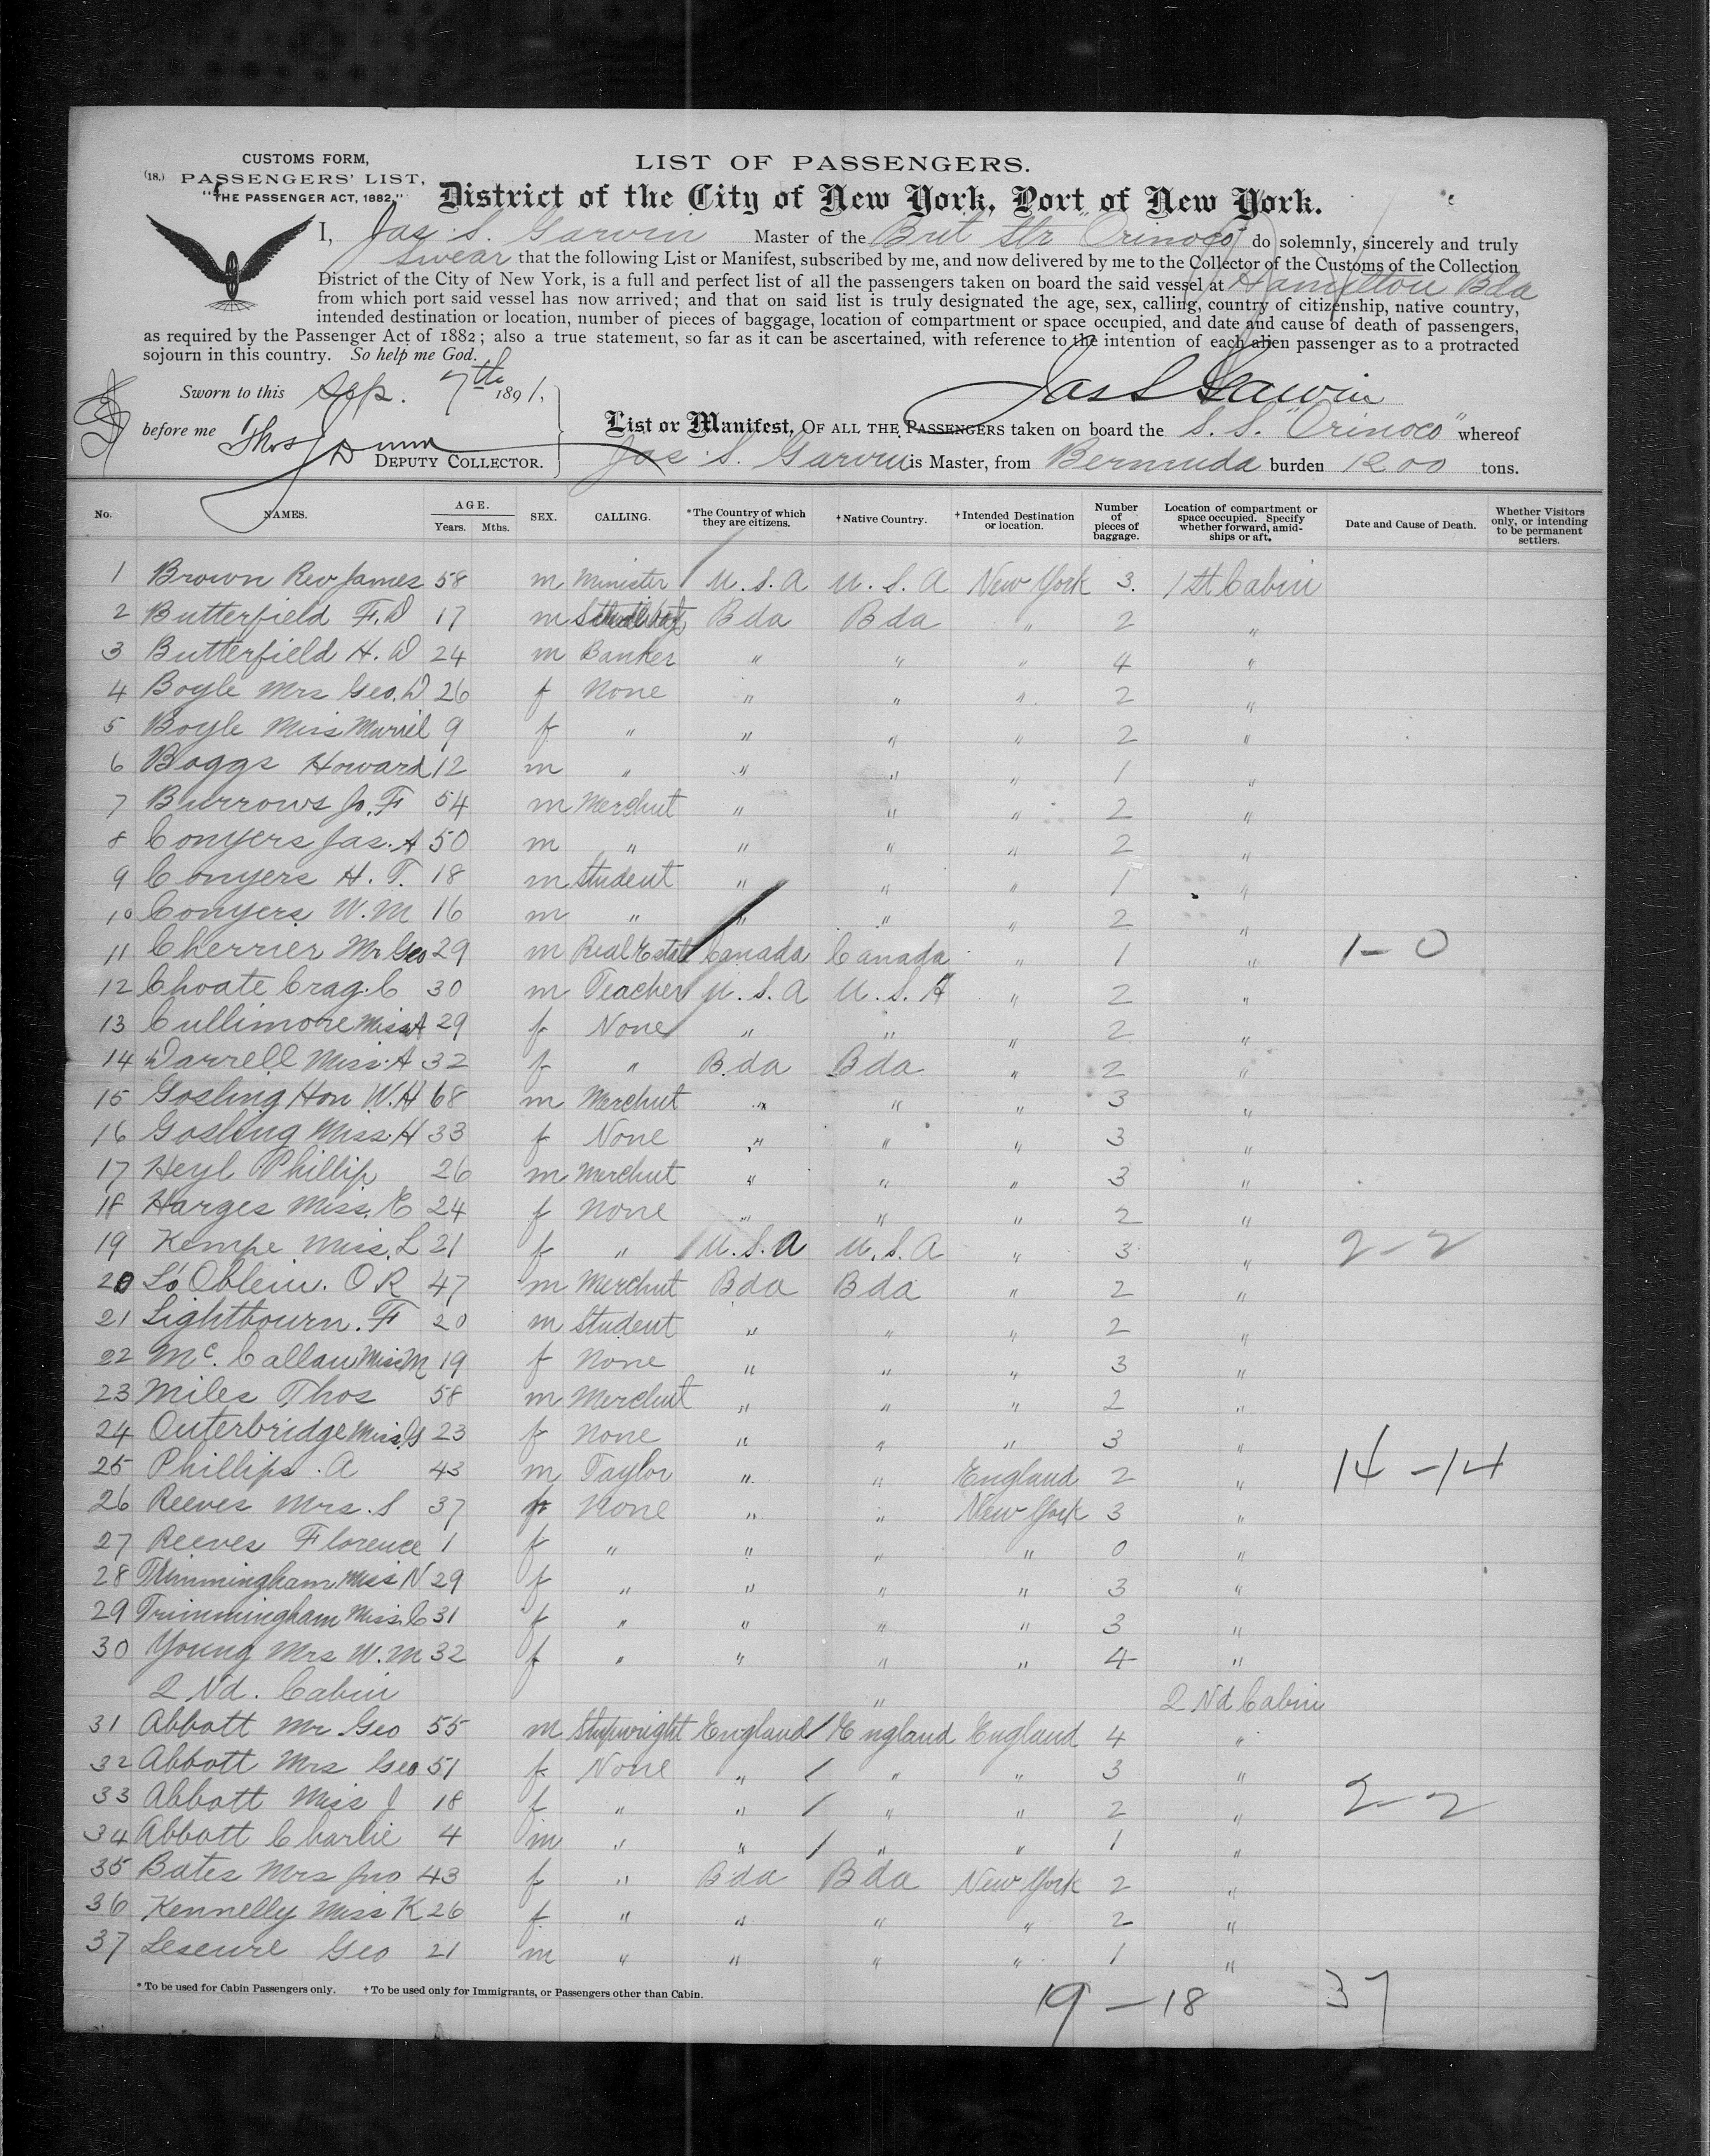 CUSTOMS FORM,
(18.) PASSENGERS' LIST,
"THE PASSENGER ACT, 1882."
LIST OF PASSENGERS.
District of the City of New York, Port of New York.
I, Jas. S. Garvin Master of the Brit Str "Orinoco" do solemnly, sincerely and truly
swear that the following List or Manifest, subscribed by me, and now delivered by me to the Collector of the Customs of the Collection
District of the City of New York, is a full and perfect list of all the passengers taken on board the said vessel at Hamilton Bda
from which port said vessel has now arrived; and that on said list is truly designated the age, sex, calling, country of citizenship, native country,
intended destination or location, number of pieces of baggage, location of compartment or space occupied, and date and cause of death of passengers,
as required by the Passenger Act of 1882; also a true statement, so far as it can be ascertained, with reference to the intention of each alien passenger as to a protracted
sojourn in this country. So help me God.
Jas S Garvin
Sworn to this Sep. 7th 1891,
before me Thos J Dunn
DEPUTY COLLECTOR.
List or Manifest, OF ALL THE PASSENGERS taken on board the S. S. "Orinoco" whereof
Jas. S. Garvin is Master, from Bermuda burden 1200 tons.
No. NAMES. AGE. Years. Mths. SEX. CALLING. *The Country of which they are citizens. †Native Country. †Intended Destination or location. Number of pieces of baggage. Location of compartment or space occupied. Specify whether forward, amidships or aft. Date and Cause of Death. Whether Visitors only, or intending to be permanent settlers.
1 Brown Rev James 58 m Minister U.S.A U.S.A New York 3. 1st Cabin
2 Butterfield F.D 17 m Bda Bda " 2 "
3 Butterfield H.D 24 m Banker " " " 4 "
4 Boyle Mrs Geo.D 26 f None " " " 2 "
5 Boyle Miss Murriel 9 f " " " " 2 "
6 Boggs Howard 12 m " " " " 1 "
7 Burrows Jo. F 54 m Merchut " " " 2 "
8 Conyers Jas. A 50 m " " " " 2 "
9 Conyers H. T. 18 m Student " " " 1 "
10 Conyers W. M 16 m " " " " 2 "
11 Cherrier Mr Geo 29 m Real Estate Canada Canada " 1 " 1-0
12 Choate Crag. C 30 m Teacher U.S.A U.S.A " 2 "
13 Cullimore Miss A 29 f None " " " 2 "
14 Darrell Miss. A 32 f " Bda Bda " 2 "
15 Gosling Hon W.H 68 m Merchut " " " 3 "
16 Gosling Miss. H 33 f None " " " 3 "
17 Heyl Phillip 26 m Merchut " " " 3 "
18 Harges Miss. E 24 f None " " " 2 "
19 Kempe Miss. L 21 f " U.S.A U.S.A " 3 " 2-2
20 O R 47 m Merchut Bda Bda " 2 "
21 Lightbourn. F 20 m Student " " " 2 "
22 Mc. Callan Miss M 19 f None " " " 3 "
23 Miles Thos 58 m Merchut " " " 2 "
24 Outerbridge Miss. G 23 f None " " " 3 "
25 Phillips. A 43 m Taylor " " England 2 " 14-14
26 Reeves Mrs. S 37 f None " " New York 3 "
27 Reeves Florence 1 f " " " " 0 "
28 Trimmingham Miss N 29 f " " " " 3 "
29 Trimmingham Miss. C 31 f " " " " 3 "
30 Young Mrs W.M 32 f " " " " 4 "
2 Nd. Cabin " 2 Nd Cabin
31 Abbott Mr Geo 55 m Shipwright England England England 4 "
32 Abbott Mrs Geo 51 f None " " " 3 "
33 Abbott Miss J 18 f " " " " 2 " 2-2
34 Abbott Charlie 4 m " " " " 1 "
35 Bates Mrs Jno 43 f " Bda Bda New York 2 "
36 Kennelly Miss K 26 f " " " " 2 "
37 Geo 21 m " " " " 1 "
* To be used for Cabin Passengers only. †To be used only for Immigrants, or Passengers other than Cabin.
19-18 37